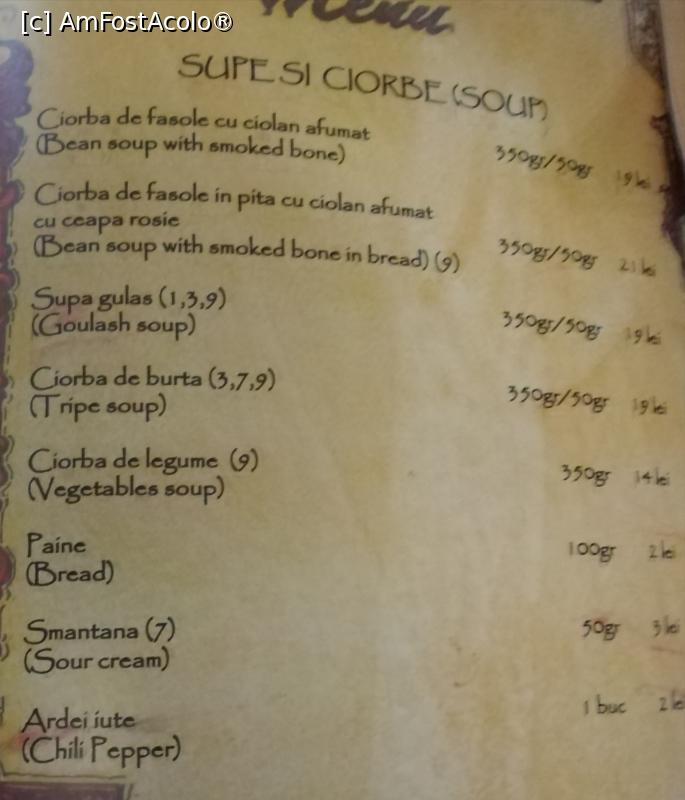 [c] AmFostAcolo®
Menu
SUPE SI CIORBE (SOUP)
Ciorba de fasole cu ciolan afumat
(Bean soup with smoked bone) 350gr/50gr 19 lei
Ciorba de fasole in pita cu ciolan afumat
cu ceapa rosie
(Bean soup with smoked bone in bread) (9) 350gr/50gr 21 lei
Supa gulas (1,3,9)
(Goulash soup) 350gr/50gr 19 lei
Ciorba de burta (3,7,9)
(Tripe soup) 350gr/50gr 19 lei
Ciorba de legume (9)
(Vegetables soup) 350gr 14 lei
Paine 100gr 2 lei
(Bread)
Smantana (7) 50gr 3 lei
(Sour cream)
Ardei iute 1 buc 2 le
(Chili Pepper)